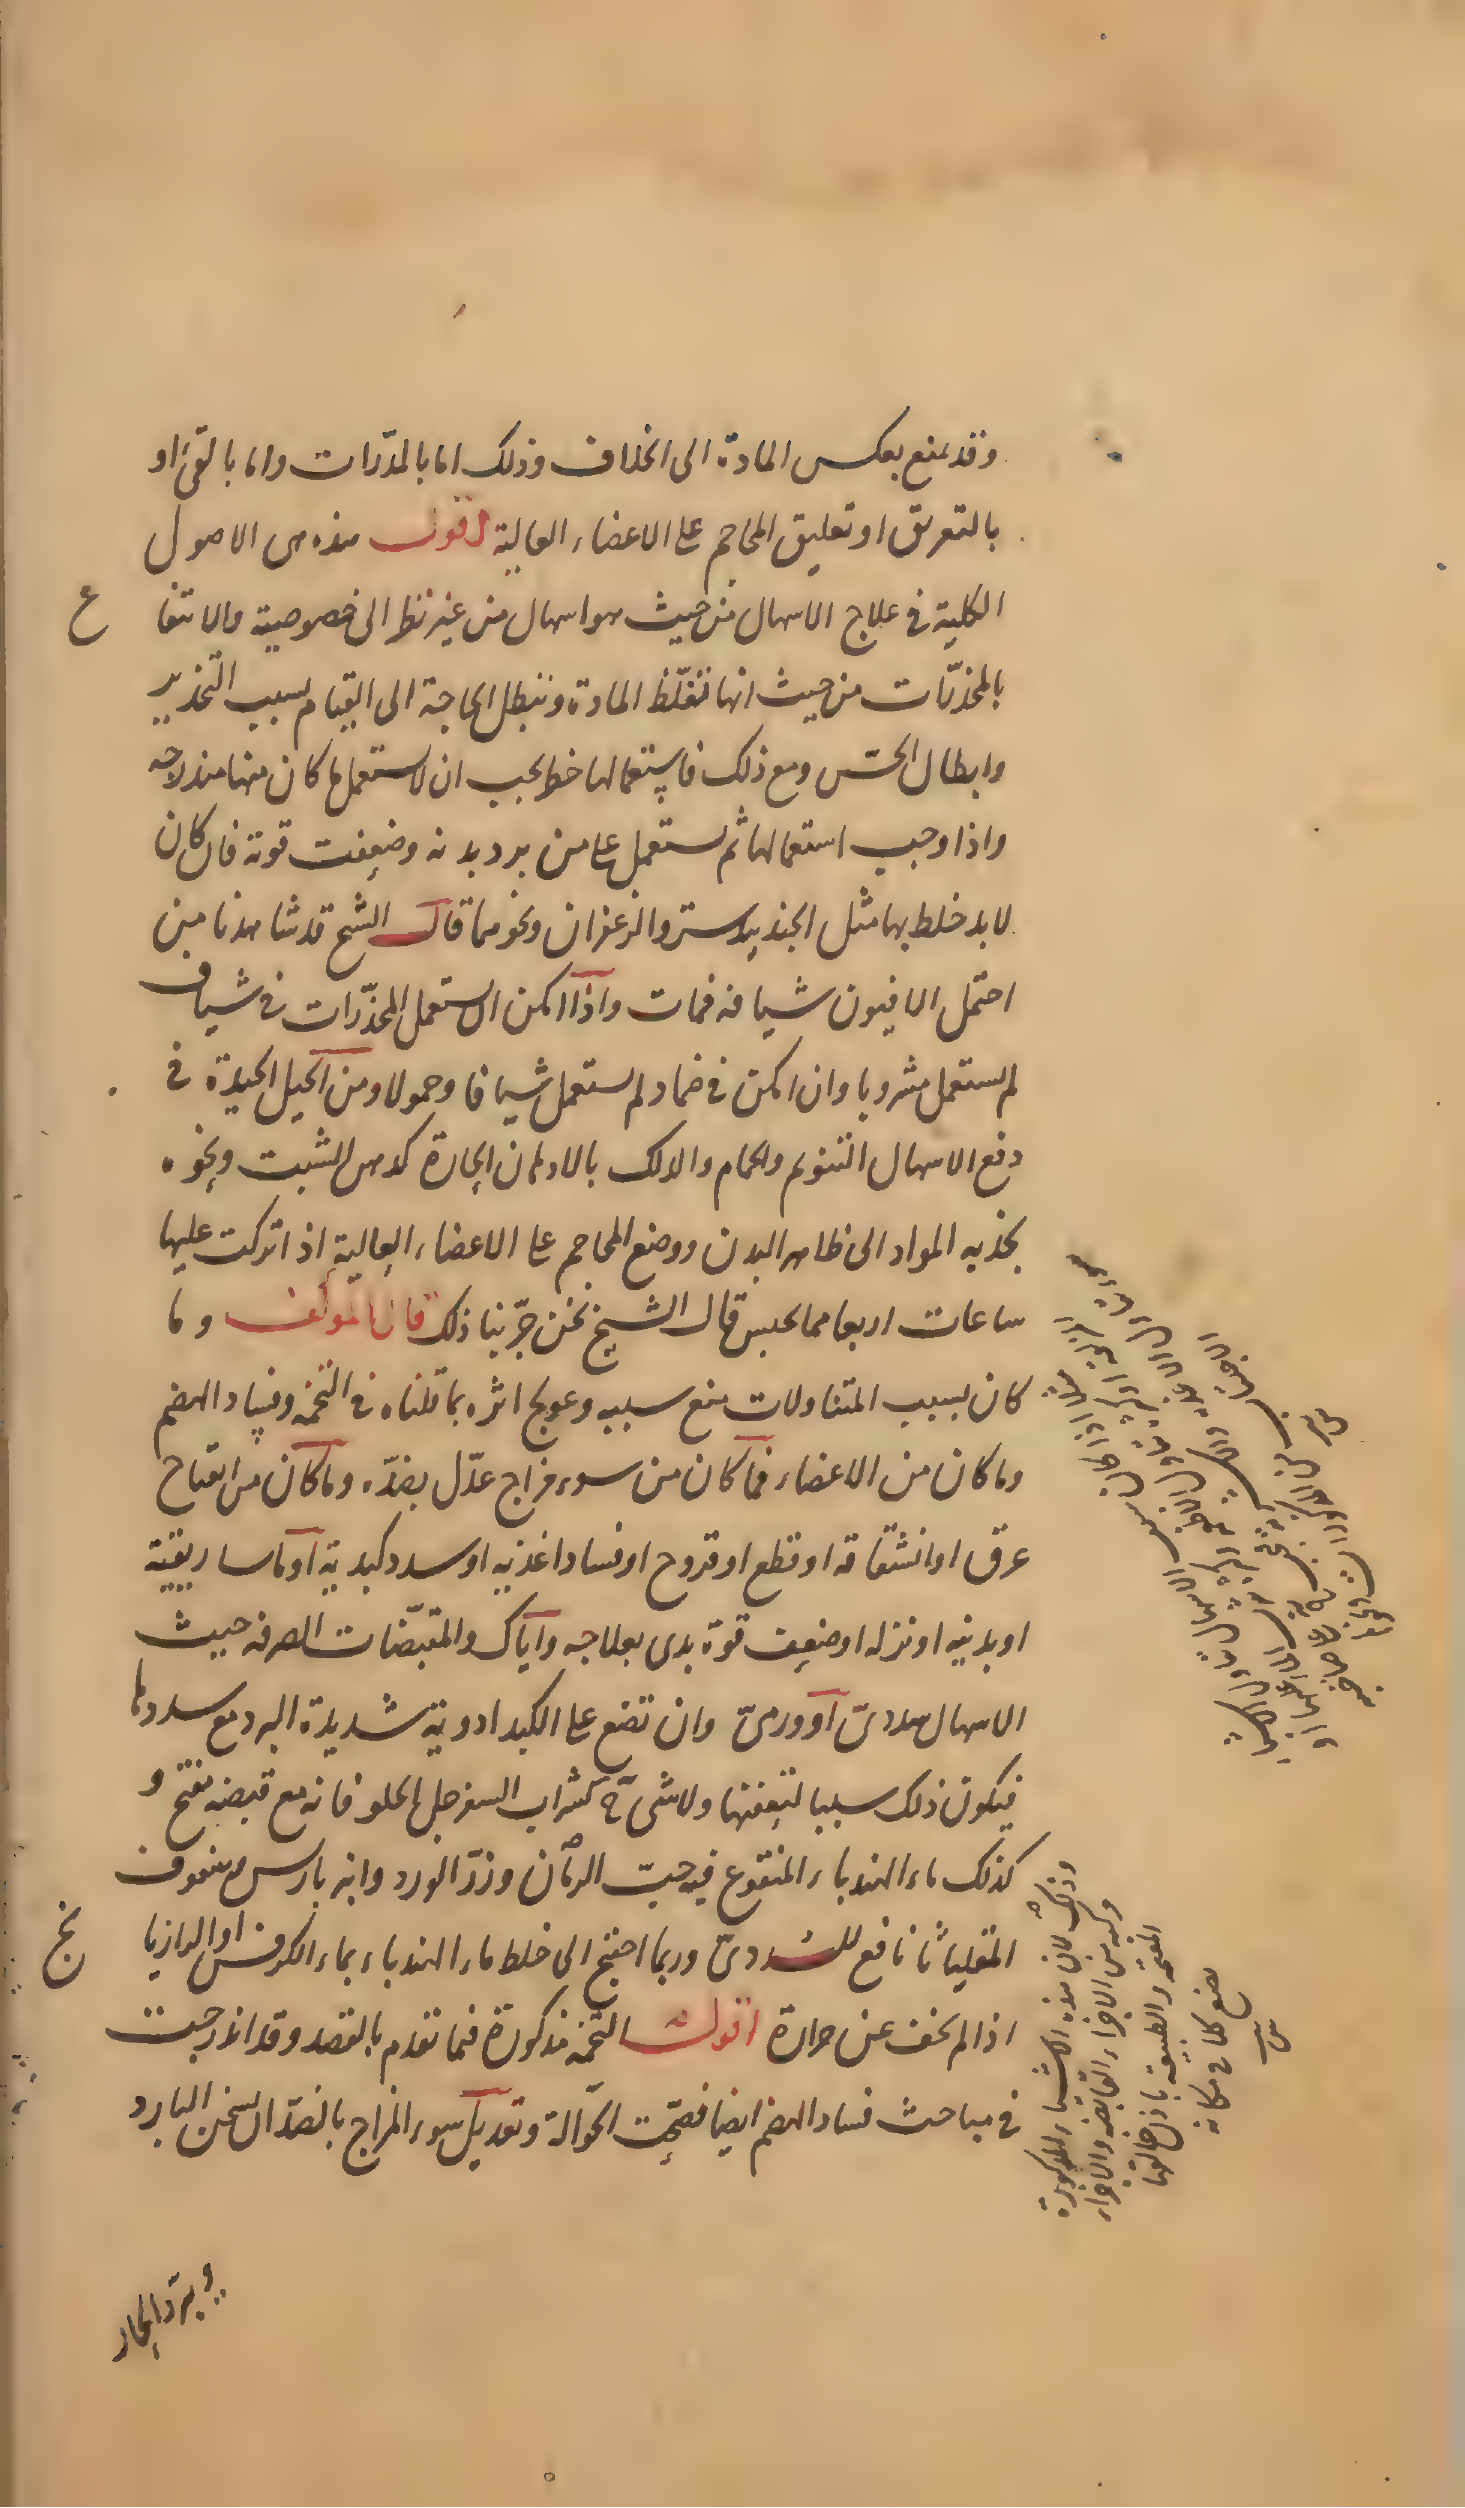 وقد يمنع بعكس المادة الى الخلاف وذلك اما بالمدرّات واما بالقئ او
بالتعريق او تعليق المحاجم على الاعضاء العالية اقول هذه هى الاصول
الكلية فى علاج الاسهال من حيث هو اسهال من غير نظر الى خصوصية والانتفا ع
بالمخدّرات من حيث انها تغلّظ المادة وتبطل الحاجة الى القيام بسبب التخدير
وابطال الحسّ ومع ذلك فاستعمالها خطر يجب ان لا يستعمل ما كان منها مندوحه
واذا وجب استعمالها ثم يستعمل على من برد بدنه وضعفت قوته فان كان
لا بد خلط بها مثل الجندبيدستر والزعفران ونحوهما قال الشيخ قد شاهدنا من
احتمل الافيون شيافه فمات واذا امكن ان يستعمل المخدّرات فى شياف
لم يستعمل مشروبا وان امكن فى ضماد لم يستعمل شيافا وحمولا ومن الحيل الجيدة فى
دفع الاسهال التنويم والحمام والدلك بالادهان الحارة كدهن الشبت ونحوه
بجذبه المواد الى ظاهر البدن ووضع المحاجم على الاعضاء العالية اذا تركت عليها
ساعات اربعا مما يحبس قال الشيخ نحن جرّبنا ذلك قال المؤلف وما
كان بسبب المتناولات منع سببه وعولج اثره بما قلناه فى التخمه وفساد الهضم
وما كان من الاعضاء فما كان من سوء مزاج عدّل بضدّه وما كان من انفتاح
عرق او انشقاقه او قطع او قروح او فساد اغذيه او سدد كبدية او ماساريقية
او بدنيه او نزله او ضعف قوة بدى بعلاجه واياك والمقبّضات الصرفه حيث
الاسهال سددىّ او ورمىّ وان تضع على الكبد ادوية شديدة البرد مع سددها
فيكون ذلك سببا لتعفنها ولا شىء ح كشراب السفرجل الحلو فانه مع قبضه مفتح و
كذلك ماء الهندباء المنقوع فيه حبّ الرمّان وزرّ الورد وانبرباريس وسفوف
المقلياثا نافع للسددىّ وربما احتيج الى خلط ماء الهندباء بماء الكرفس او الرازيا نج
اذا لم يخف عن حرارة اقول التخمه مذكورة فيما تقدم بالقصد وقد اندرجت
فى مباحث فساد الهضم ايضا فصحّت الحوالة وتعديل سوء المزاج بالضدّ ان يسخن البارد
وذلك لان هذه الاشياء المذكورة
مركبه من الاجزاء القابضه والاجزاء
المفتحه والطبيعة باذن خالقها
يضع كلا فى مكانه
ويبرّد الحار